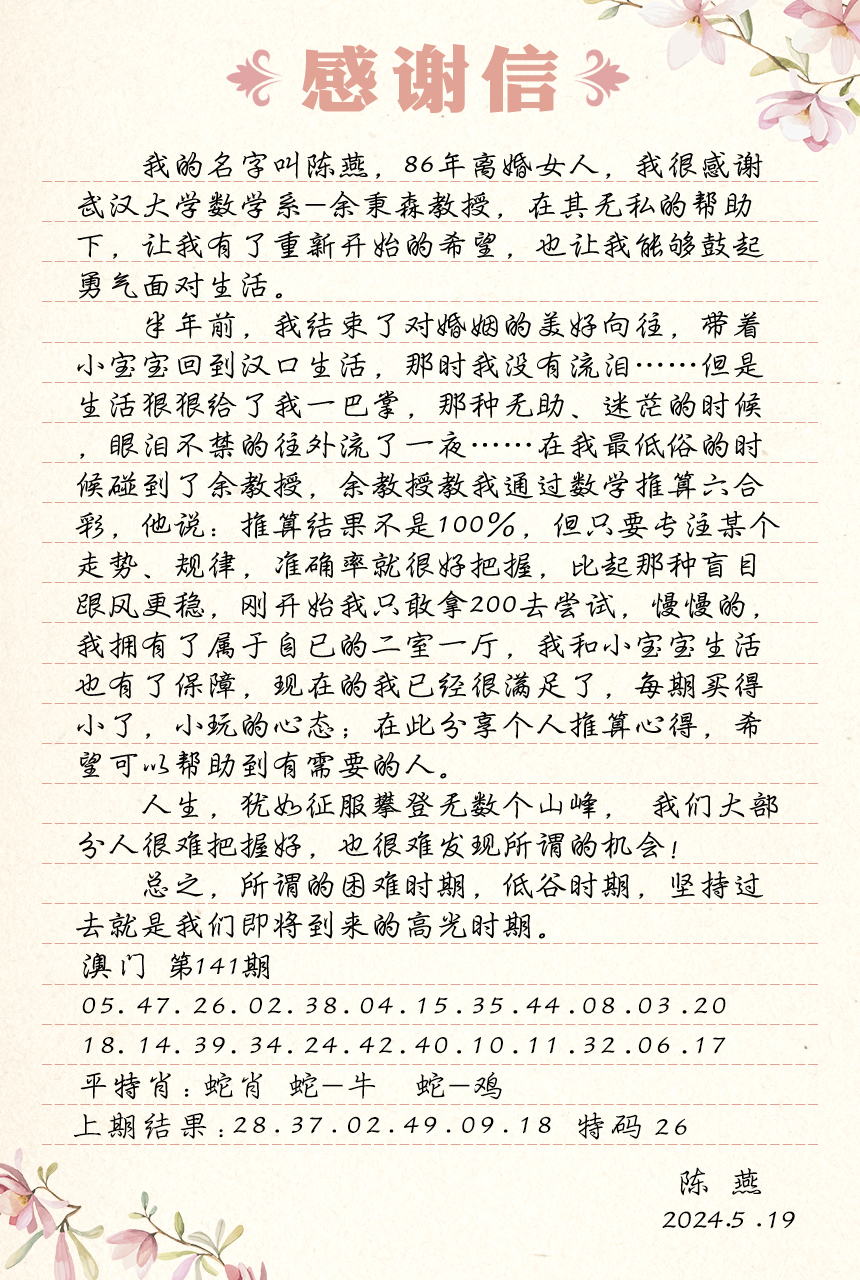 感谢信
我的名字叫陈燕，86年离婚女人，我很感谢
武汉大学数学系—余秉森教授，在其无私的帮助
下，让我有了重新开始的希望，也让我能够鼓起
勇气面对生活。
半年前，我结束了对婚姻的美好向往，带着
小宝宝回到汉口生活，那时我没有流泪……但是
生活狠狠给了我一巴掌，那种无助、迷茫的时候
，眼泪不禁的往外流了一夜……在我最低俗的时
候碰到了余教授，余教授教我通过数学推算六合
彩，他说：推算结果不是100%，但只要专注某个
走势、规律，准确率就很好把握，比起那种盲目
跟风更稳，刚开始我只敢拿200去尝试，慢慢的，
我拥有了属于自已的二室一厅，我和小宝宝生活
也有了保障，现在的我已经很满足了，每期买得
小了，小玩的心态；在此分享个人推算心得，希
望可以帮助到有需要的人。
人生，犹如征服攀登无数个山峰， 我们大部
分人很难把握好，也很难发现所谓的机会！
总之，所谓的困难时期，低谷时期，坚持过
去就是我们即将到来的高光时期。
澳门 第141期
05.47.26.02.38.04.15.35.44.08.03.20
18.14.39.34.24.42.40.10.11.32.06.17
平特肖：蛇肖 蛇—牛 蛇—鸡
上期结果：28.37.02.49.09.18 特码 26
陈 燕
2024.5 .19